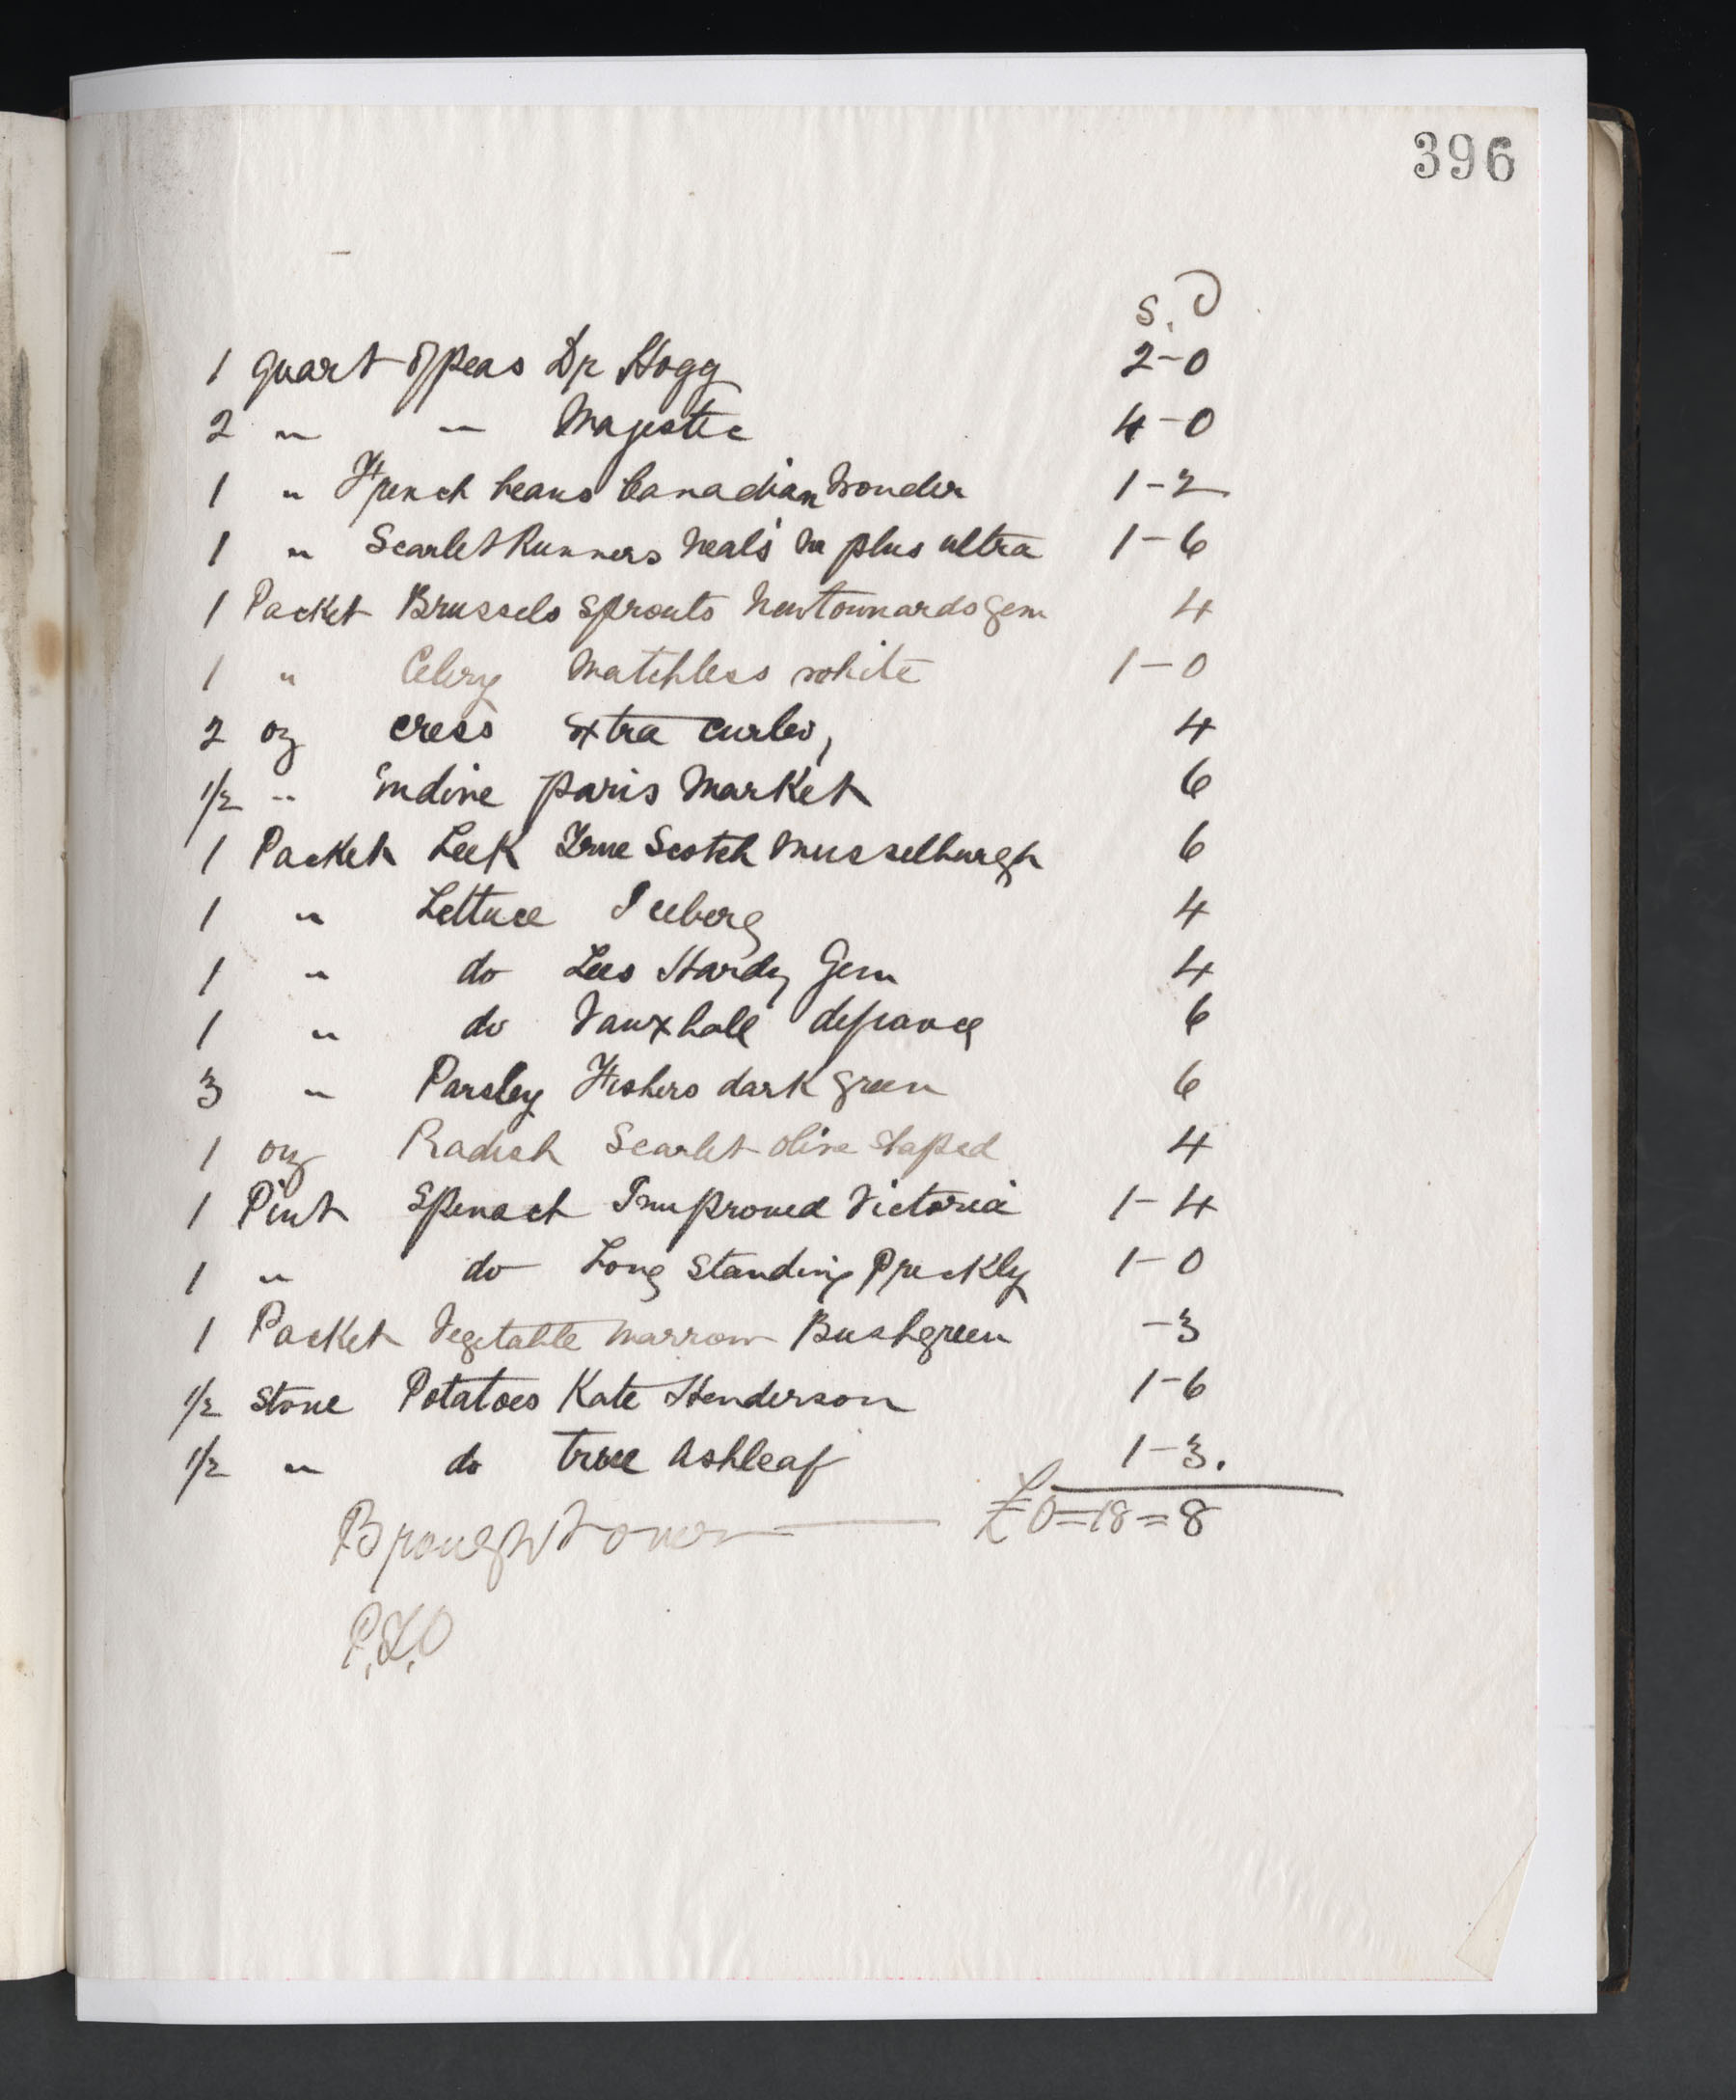 396
s. d
1 quart of peas Dr Hogg 2-0
2 " " Majestic 4-0
1 " French beans Canadian Wonder 1-2
1 " Scarlet Runners Neal's Ne plus ultra 1-6
1 Packet Brussels Sprouts Newtownards Gem 4
1 " Celery Matchless white 1-0
2 oz cress Extra curled, 4
1/2 " Endive Paris Market 6
1 Packet Leek True Scotch Musselburgh 6
1 " Lettuce Iceberg 4
1 " do Lees Hardy Gem 4
1 " do Vauxhall defiance 6
3 " Parsley Fishers dark green 6
1 oz Radish Scarlet Olive Shaped 4
1 Pint Spinach Improved Victoria 1-4
1 " do Long Standing Prickly 1-0
1 Packet Vegetable Marrow Bush green -3
1/2 Stone Potatoes Kate Henderson 1-6
1/2 " do true Ashleaf 1-3.
Brought over — £0=18=8
P.T.O